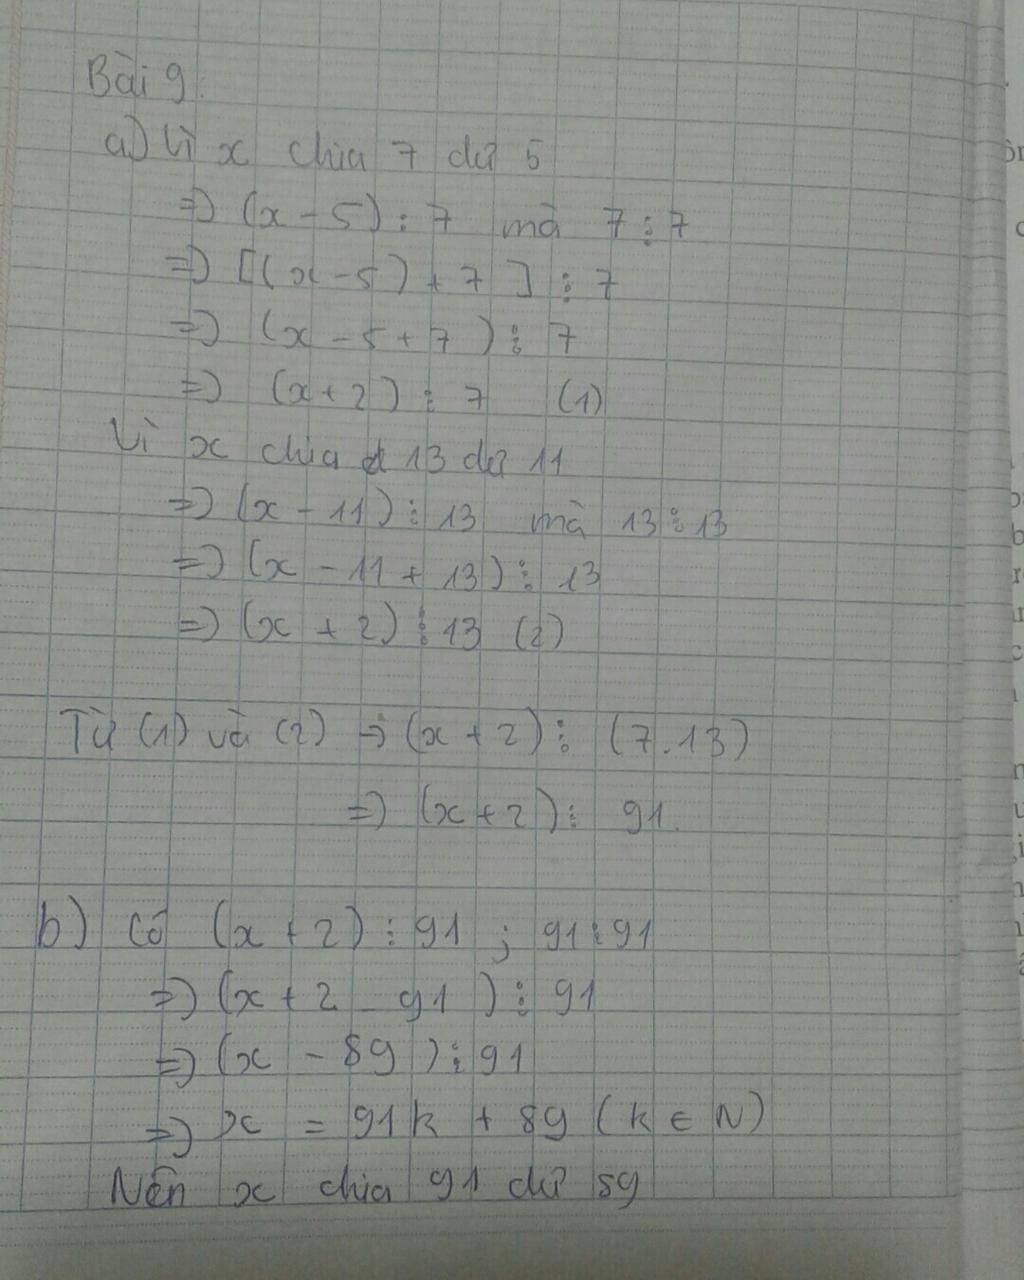 Bài 9.
a) Vì x chia 7 dư 5
=> (x - 5) ⋮ 7 mà 7 ⋮ 7
=> [(x - 5) + 7] ⋮ 7
=> (x - 5 + 7) ⋮ 7
=> (x + 2) ⋮ 7 (1)
Vì x chia 13 dư 11
=> (x - 11) ⋮ 13 mà 13 ⋮ 13
=> (x - 11 + 13) ⋮ 13
=> (x + 2) ⋮ 13 (2)
Từ (1) và (2) => (x + 2) ⋮ (7.13)
=> (x + 2) ⋮ 91.
b) Có (x + 2) ⋮ 91 ; 91 ⋮ 91
=> (x + 2 - 91) ⋮ 91
=> (x - 89) ⋮ 91
=> x = 91k + 89 (k ∈ N)
Nên x chia 91 dư 89